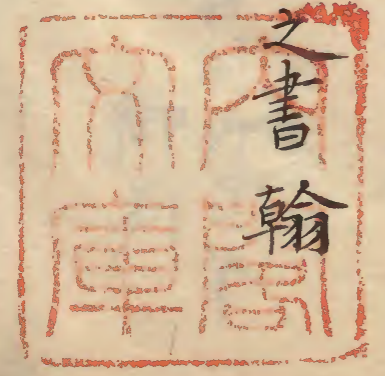 之書翰
內閣
文庫